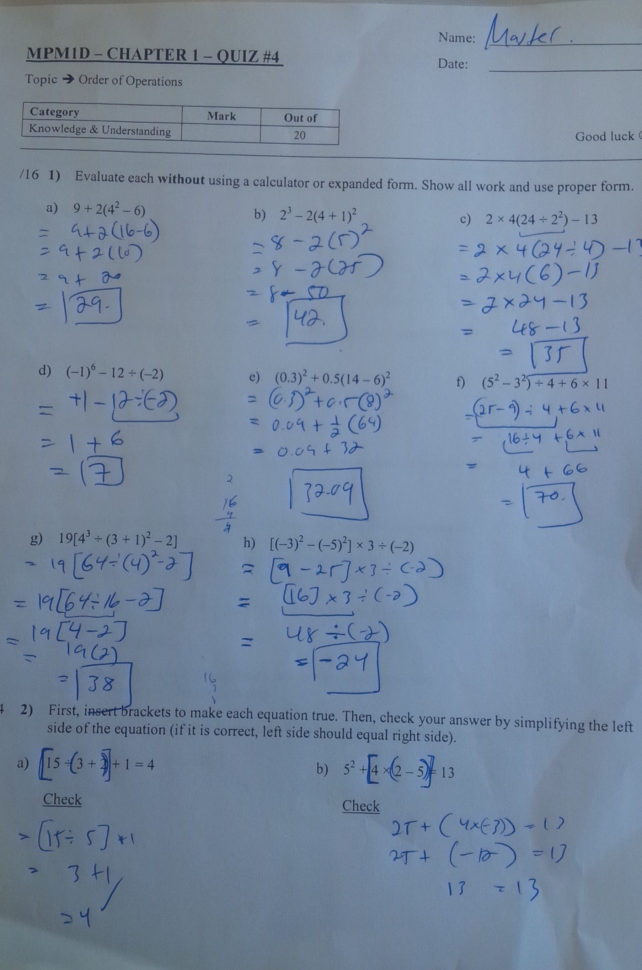 Name: Master.
MPM1D – CHAPTER 1 – QUIZ #4
Date:
Topic ➔ Order of Operations
Category Mark Out of
Knowledge & Understanding 20
Good luck
/16 1) Evaluate each without using a calculator or expanded form. Show all work and use proper form.
a) 9 + 2(4² – 6)
= 9+2(16-6)
= 9+2(10)
= 9+ 20
= 29.
b) 2³ – 2(4 + 1)²
= 8 - 2(5)²
= 8 - 2(25)
= 8 - 50
= 42.
c) 2 × 4(24 ÷ 2²) – 13
= 2 × 4(24÷4) - 13
= 2×4(6) - 13
= 2×24 - 13
= 48-13
= 35
d) (–1)⁶ – 12 ÷ (–2)
= +1 - 12÷(-2)
= 1 + 6
= 7
e) (0.3)² + 0.5(14 – 6)²
= (0.3)² + 0.5(8)²
= 0.09 + ½ (64)
= 0.09 + 32
32.09
f) (5² – 3²) ÷ 4 + 6 × 11
= (25-9) ÷ 4 + 6×11
= 16÷4 + 6×11
= 4 + 66
= 70.
g) 19[4³ ÷ (3 + 1)² – 2]
= 19[64÷(4)²-2]
= 19[64÷16-2]
= 19[4-2]
= 19(2)
= 38
h) [(–3)² – (–5)²] × 3 ÷ (–2)
= [9 - 25]×3÷(-2)
= [16]×3÷(-2)
= 48÷(-2)
= -24
2) First, insert brackets to make each equation true. Then, check your answer by simplifying the left
side of the equation (if it is correct, left side should equal right side).
a) [15 ÷(3 + 2)] + 1 = 4
Check
= [15÷5]+1
= 3+1
=4
b) 5² +[4 ×(2 – 5)]= 13
Check
25+(4×(-3)) = 13
25+ (-12) = 13
13 = 13